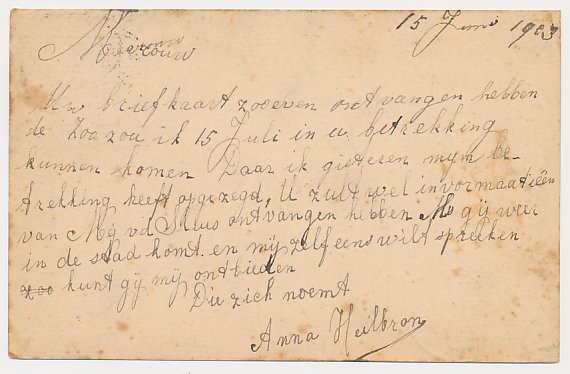 15 Juni 1903
Mevrouw
Uw briefkaart zooeven ontvangen hebben
de Zoo zou ik 15 Juli in u betrekking
kunnen komen Daar ik gisteren myn be-
trekking heeft opgezegd, U zult wel invormaatiëen
van Mej vd Sluis ontvangen hebben Als gij weer
in de stad komt en mij zelf eens wilt spreeken
zoo kunt gij mij ontbieden
Die zich noemt
Anna Heilbron